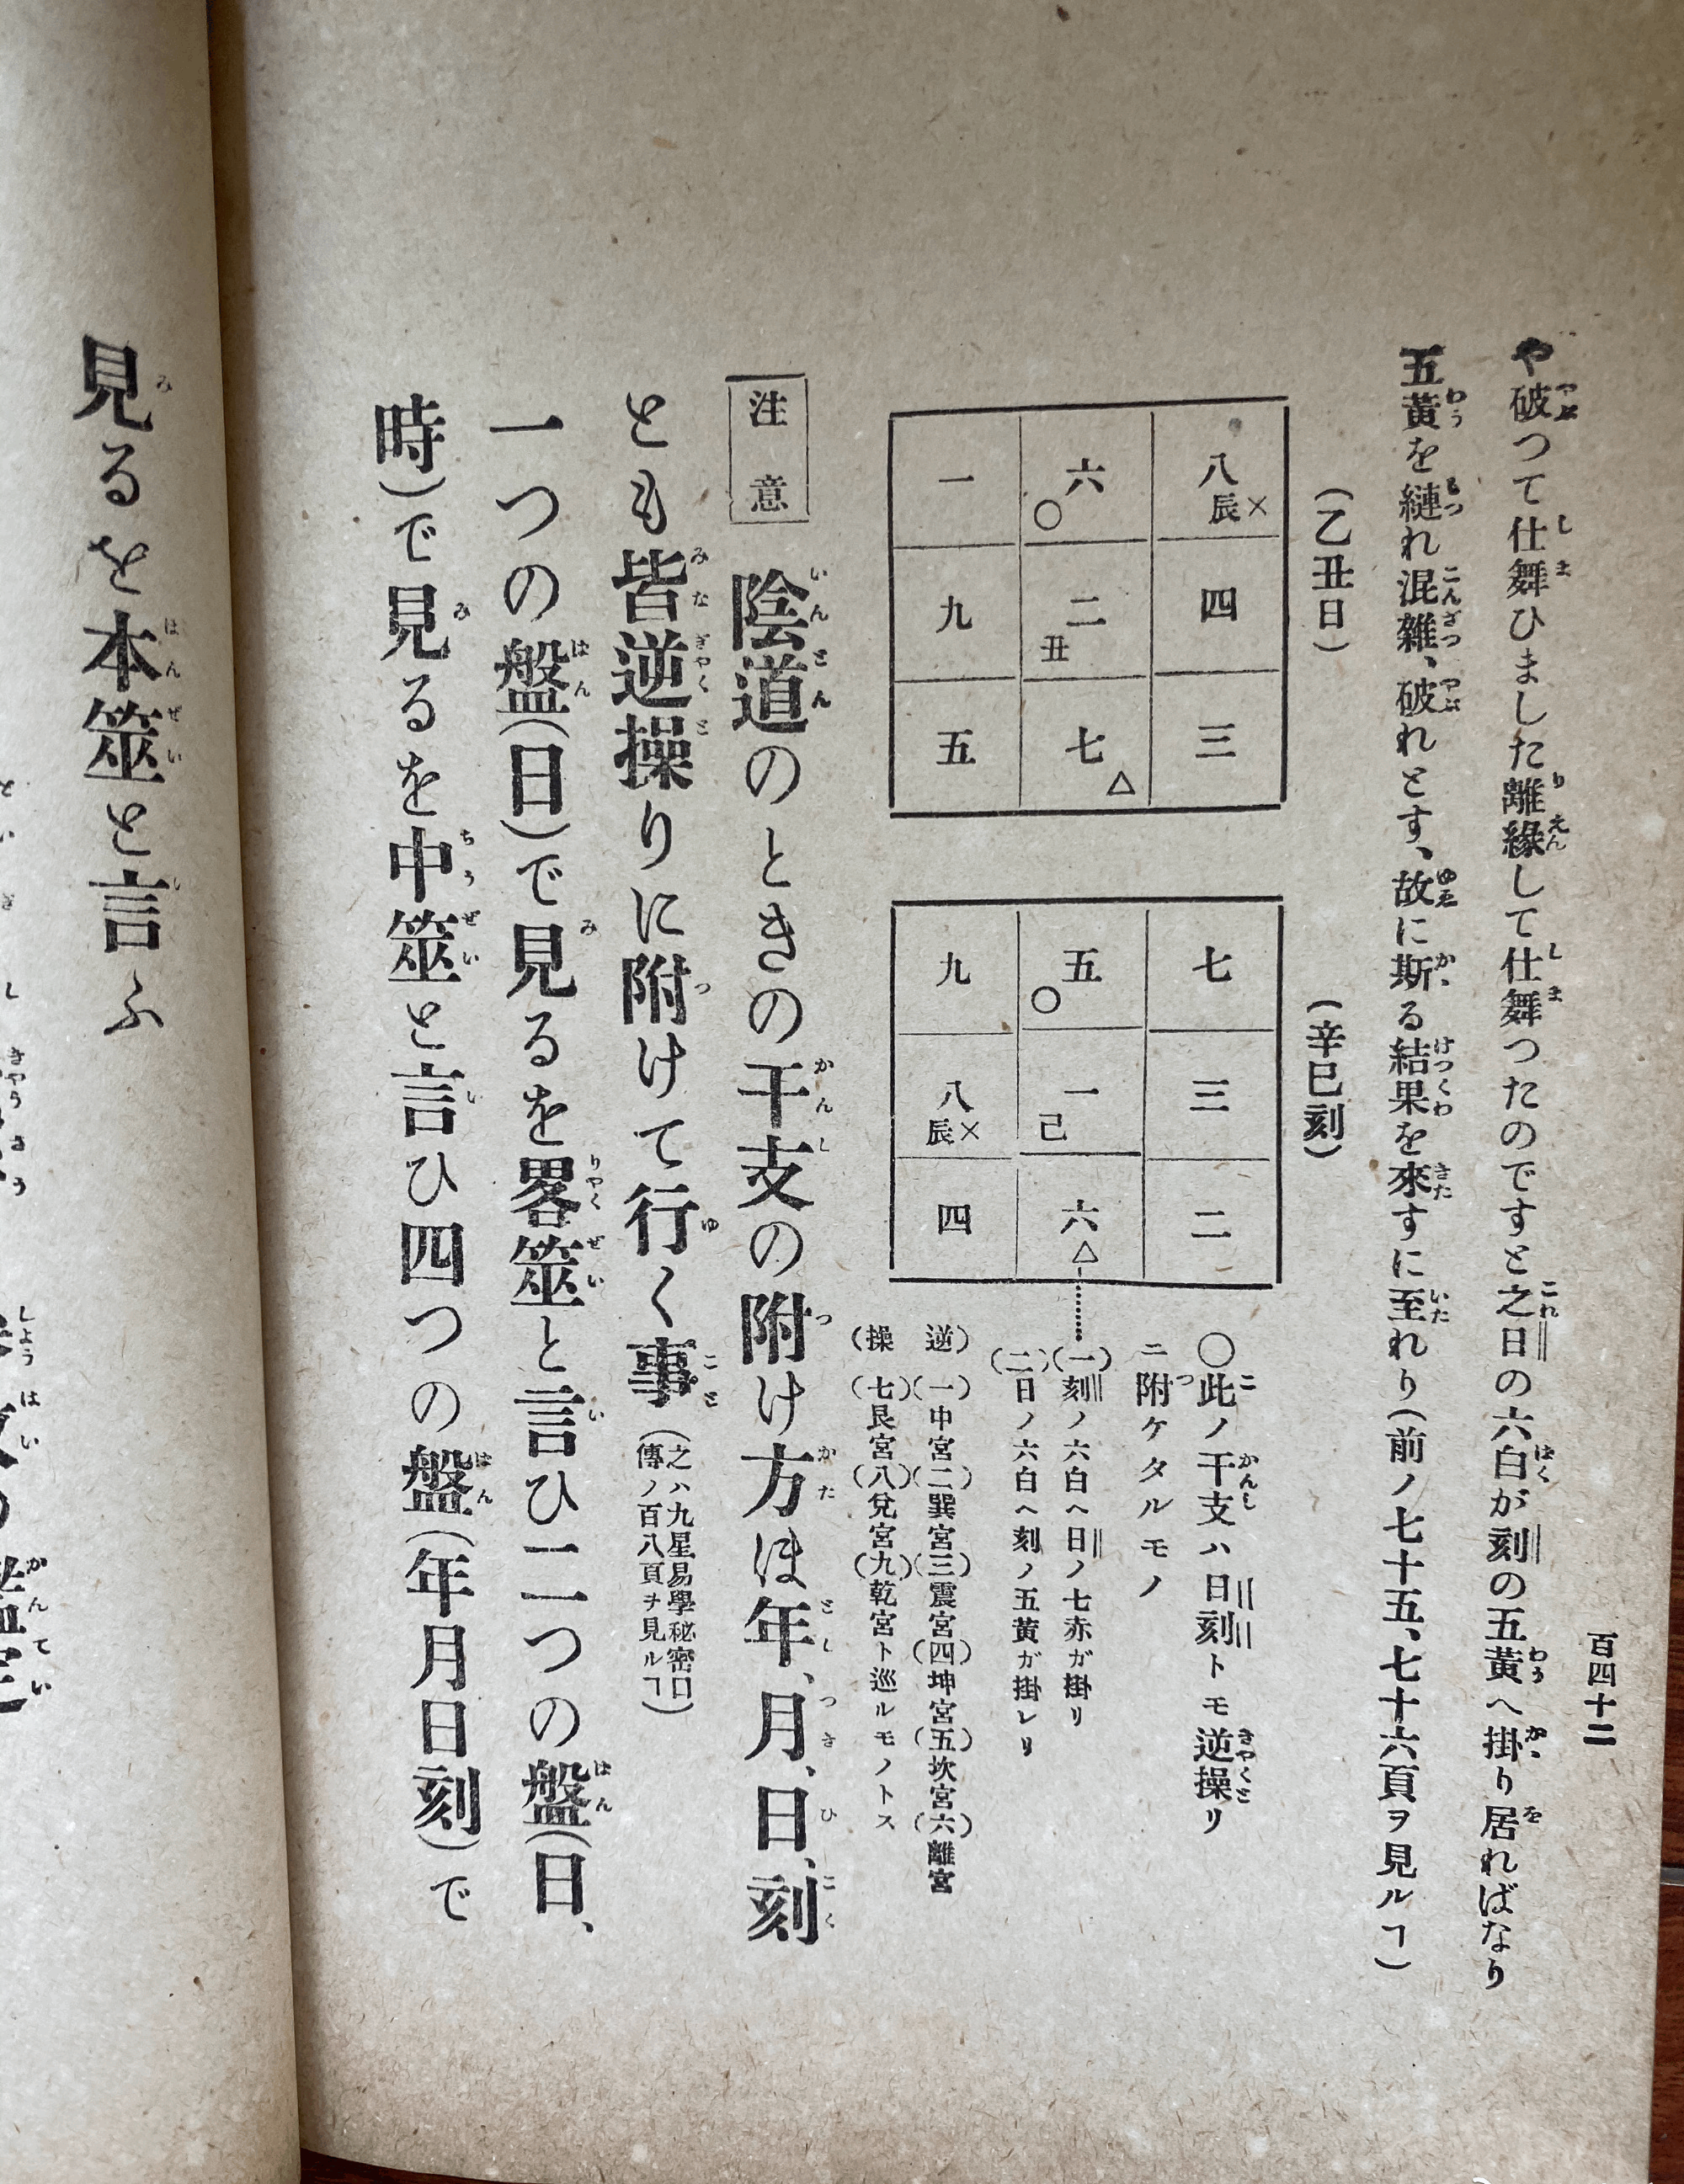 百四十二
や破つて仕舞ひました離緣して仕舞つたのですと之日の六白が刻の五黃へ掛り居ればなり
五黃を縺れ混雜、破れとす、故に斯る結果を來すに至れり(前ノ七十五、七十六頁ヲ見ルヿ)
(乙丑日)
八 辰×
四
三
六 〇
二 丑
七 △
一
九
五
(辛巳刻)
七
三
二
五 〇
一 己
六 △
九
八 辰×
四
〇此ノ干支ハ日刻トモ逆操リ
ニ附ケタルモノ
(一)刻ノ六白ヘ日ノ七赤ガ掛リ
(二)日ノ六白ヘ刻ノ五黃ガ掛レリ
逆)(一)中宮(二)巽宮(三)震宮(四)坤宮(五)坎宮(六)離宮
(操(七)艮宮(八)兌宮(九)乾宮ト巡ルモノトス
注意
陰道のときの干支の附け方ほ年、月、日、刻
とも皆逆操りに附けて行く事(之ハ九星易學秘密口
傳ノ百八頁ヲ見ルヿ)
一つの盤(日)で見るを畧筮と言ひ二つの盤(日、
時)で見るを中筮と言ひ四つの盤(年月日刻)で
見るを本筮と言ふ